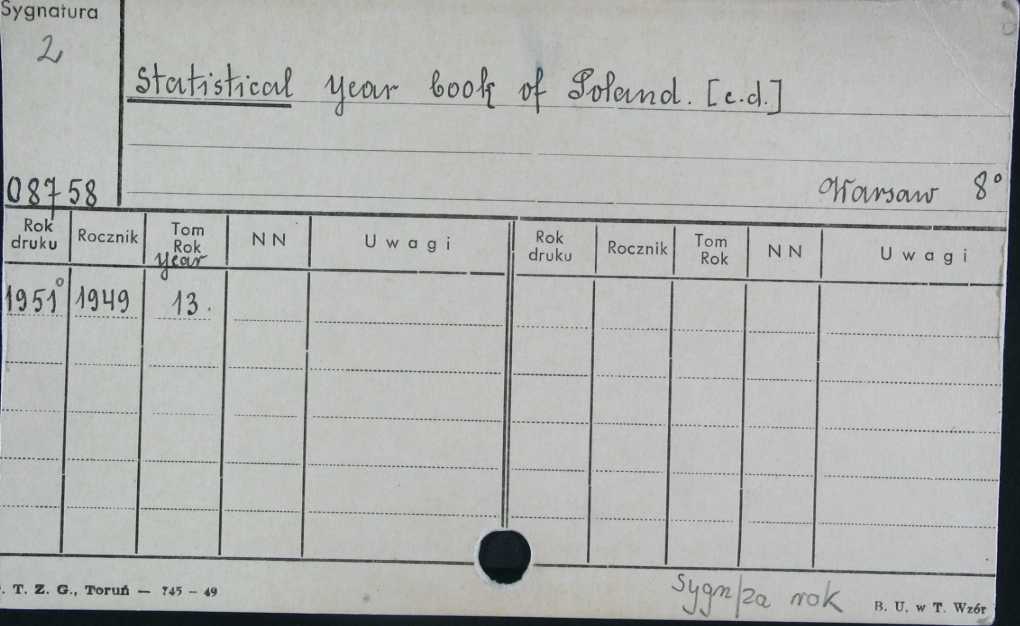 Sygnatura
2
Statistical year book of Poland. [c.d.]
08758
Warsaw 8°
Rok druku Rocznik Tom Rok year NN Uwagi Rok druku Rocznik Tom Rok NN Uwagi
1951° 1949 13.
. T. Z. G., Toruń — 745 - 49
Sygn/za rok
B. U. w T. Wzór